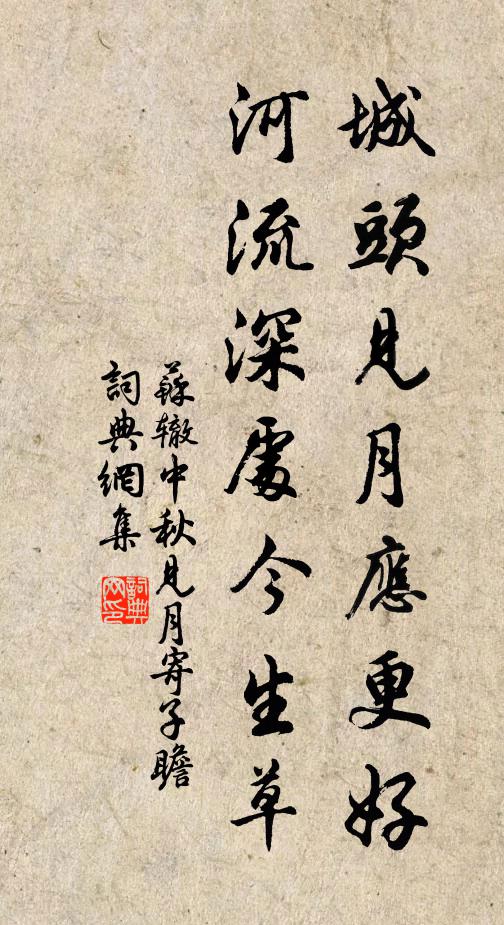 城頭見月應更好
河流深處今生草
蘇轍中秋見月寄子瞻
詞典網集
詞典
网印